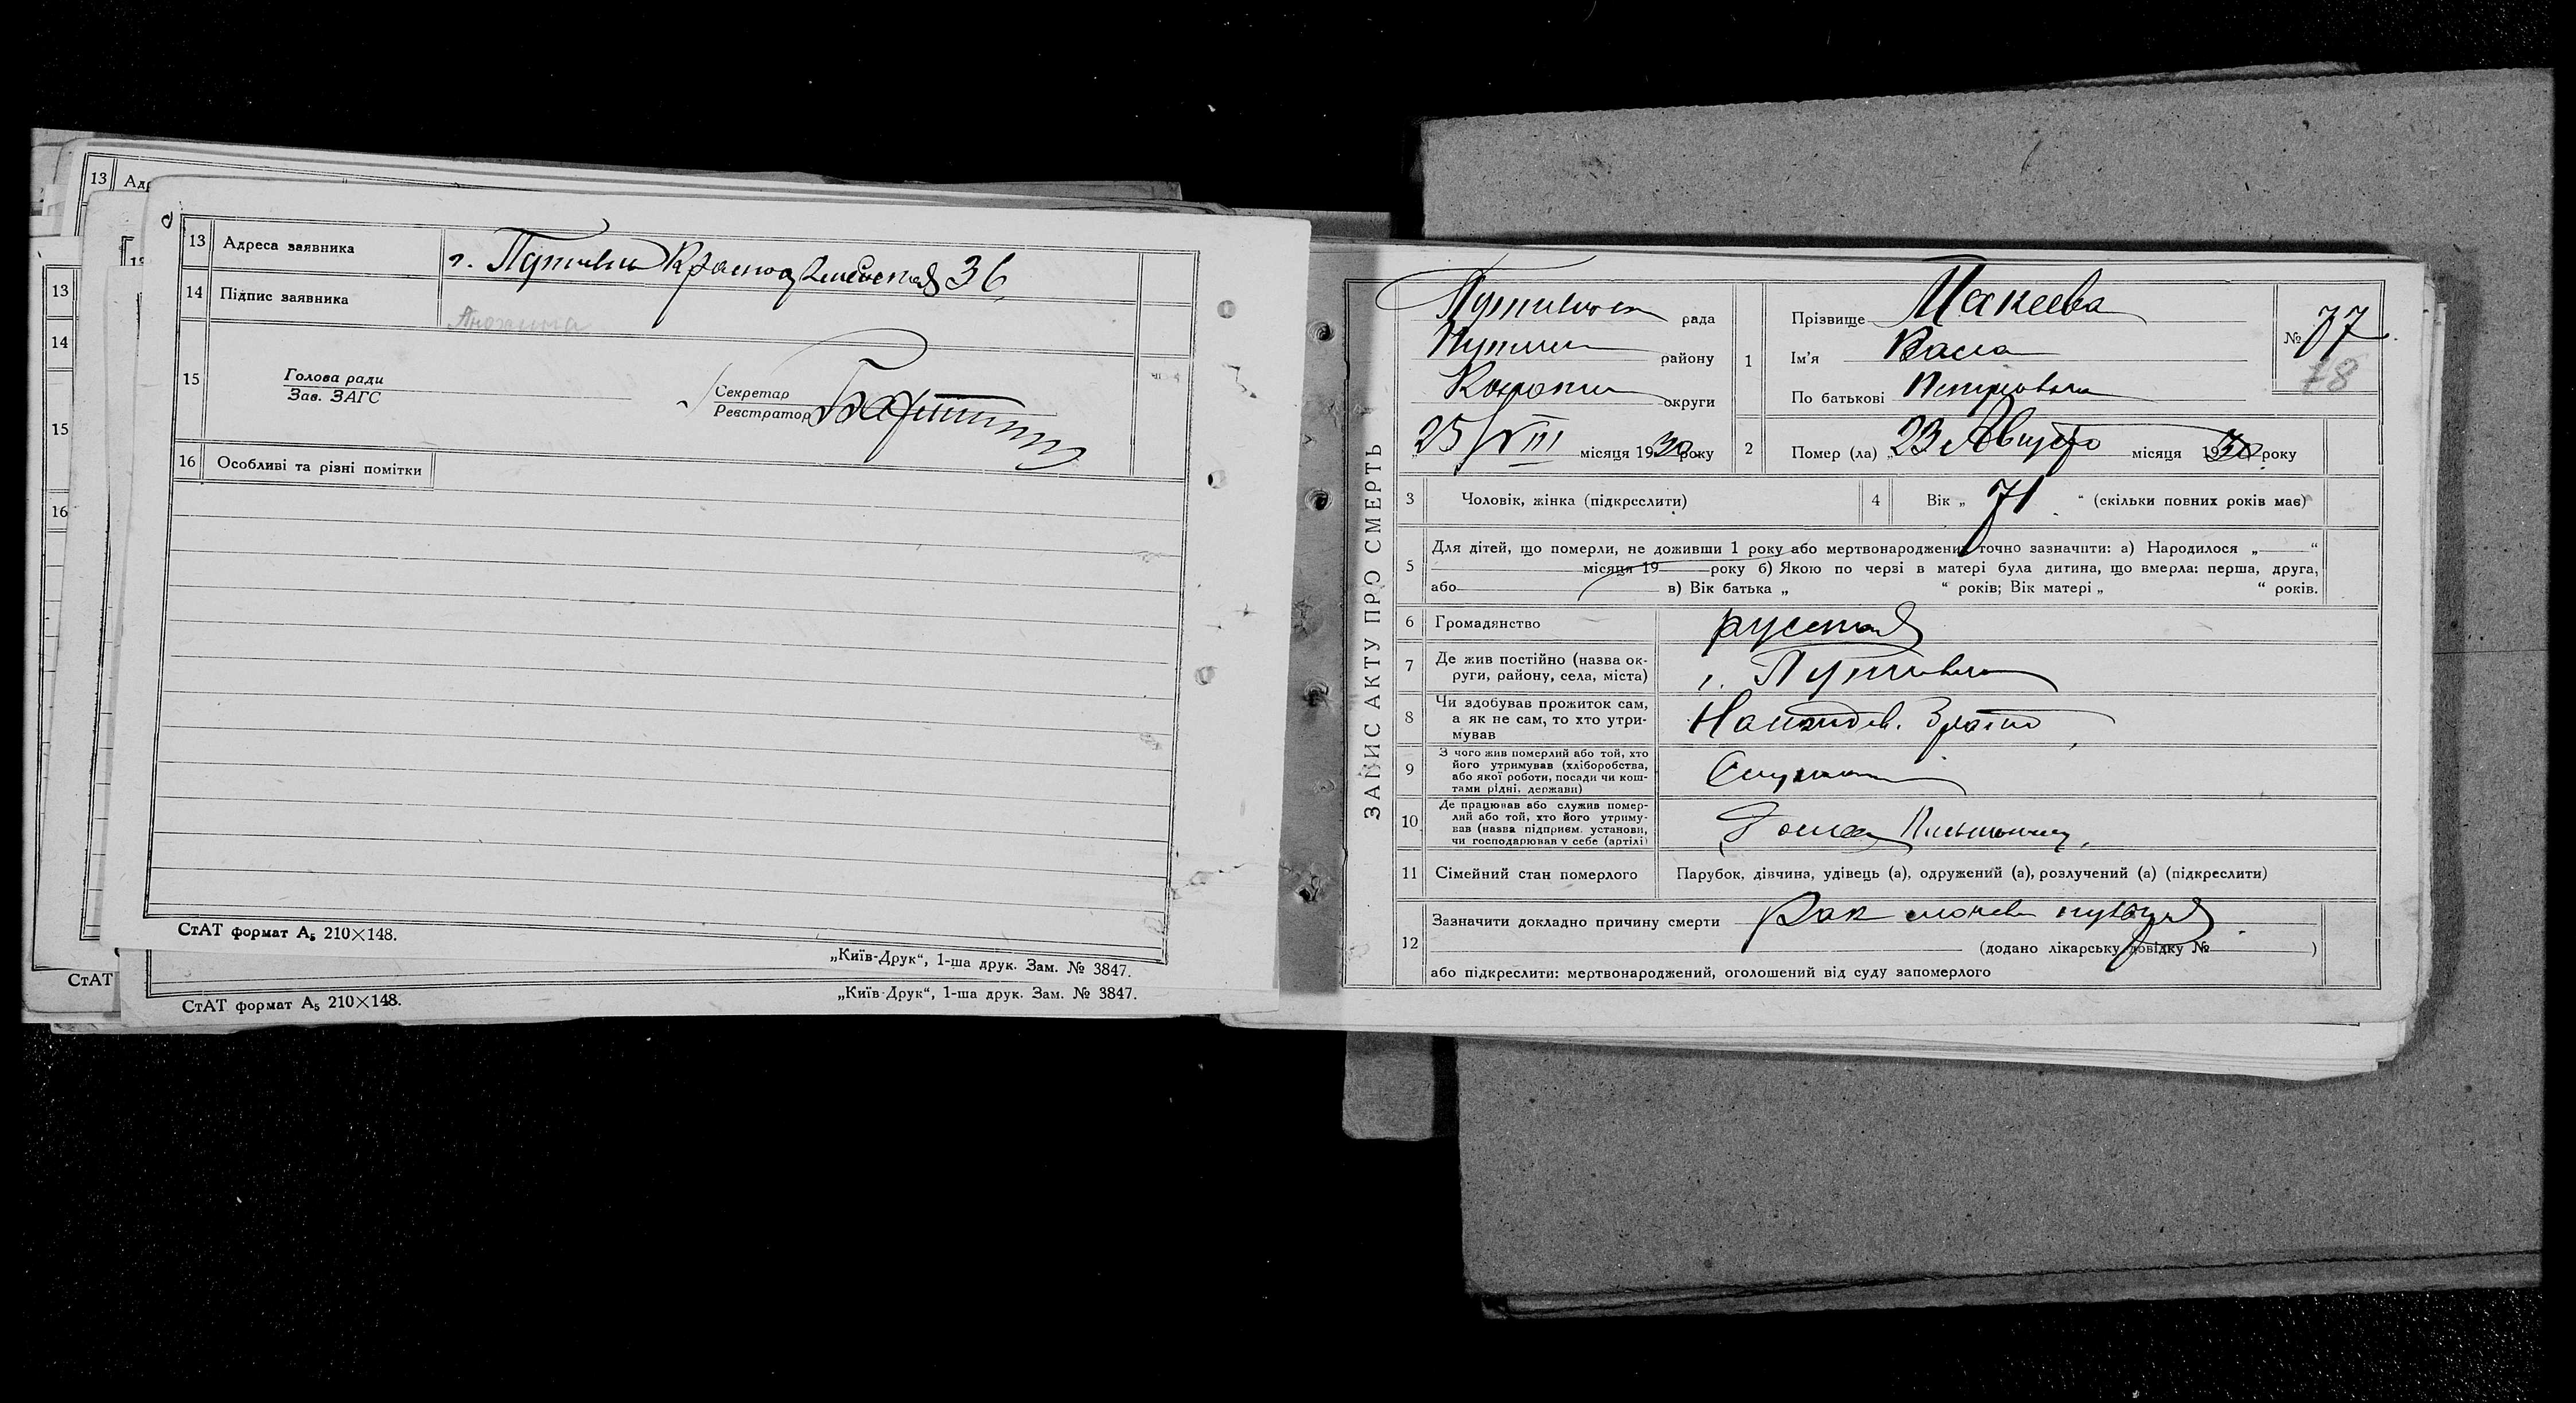 13 Ад
13
14
15
16
СтАТ
13 Адреса заявника г. Путивль Красноармейская 36
14 Підпис заявника Анохина
15 Голова ради
Зав. ЗАГС
Секретар
Реєстратор
16 Особливі та різні помітки
СтАТ формат А5 210×148.
„Київ-Друк“, 1-ша друк. Зам. № 3847.
СтАТ формат А5 210×148.
„Київ-Друк“, 1-ша друк. Зам. № 3847.
ЗАПИС АКТУ ПРО СМЕРТЬ
рада
Путивл району
Конотоп округи
„25/VIII місяця 1930 року
1 Прізвище Макеева
Ім'я
По батькові Петровна
№ 77
78
2 Помер (ла) „23 Августа місяця 1930 року
3 Чоловік, жінка (підкреслити)
4 Вік „ 71 “ (скільки повних років має)
5 Для дітей, що померли, не доживши 1 року або мертвонароджених точно зазначити: а) Народилося „ “
місяця 19 року б) Якою по черзі в матері була дитина, що вмерла: перша, друга,
або в) Вік батька „ “ років; Вік матері „ “ років.
6 Громадянство русская
7 Де жив постійно (назва ок-
руги, району, села, міста)
г. Путивль
8 Чи здобував прожиток сам,
а як не сам, то хто утри-
мував
9 З чого жив померлий або той, хто
його утримував (хліборобства,
або якої роботи, посади чи кош-
тами рідні, держави)
10 Де працював або служив помер-
лий або той, хто його утриму-
вав (назва підприєм. установи,
чи господарював у себе (артілі)
11 Сімейний стан померлого Парубок, дівчина, удівець (а), одружений (а), розлучений (а) (підкреслити)
12 Зазначити докладно причину смерти Рак мочев пузыря
(додано лікарську довідку № )
або підкреслити: мертвонароджений, оголошений від суду запомерлого